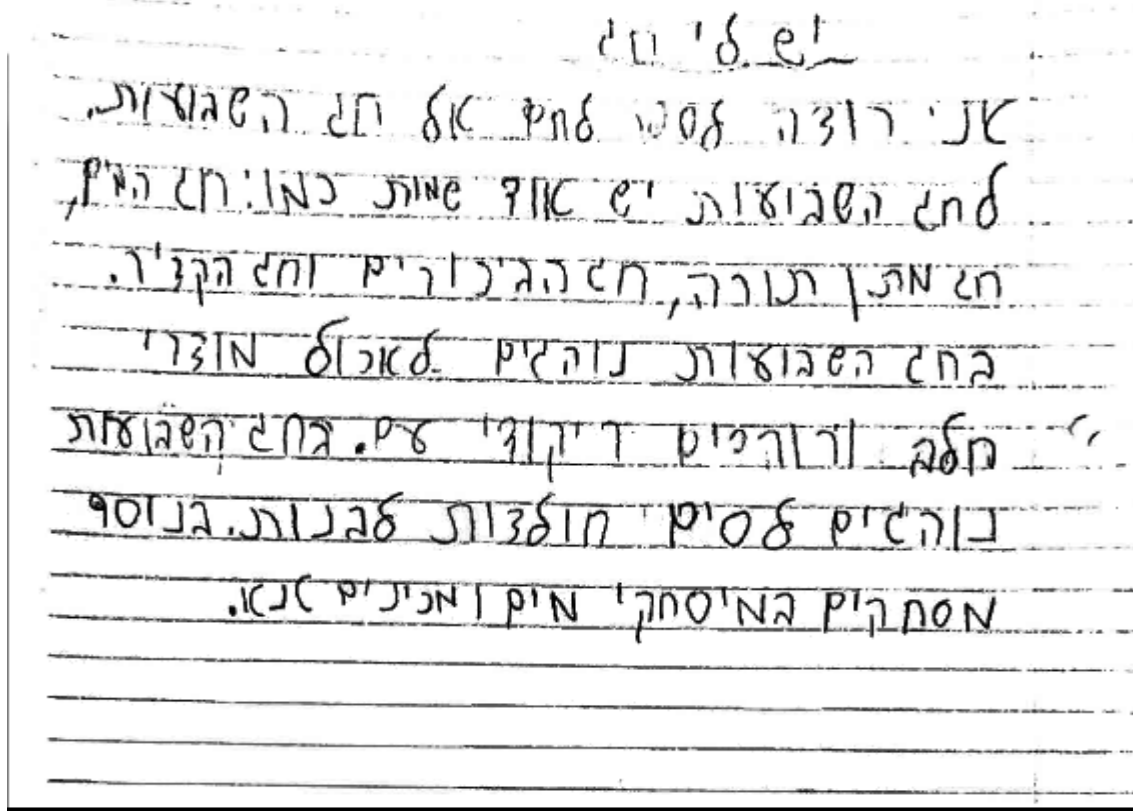 יש לי חג
אני רוצה לספר לחם אל חג השבועות.
לחג השבועות יש אוד שמות כמו: חג המים,
חג מתן תורה, חג הביכורים וחג הקציר.
בחג השבועות נוהגים לאכול מוצרי
חלב ורוקדים ריקודי עם. בחג השבועות
נוהגים לסים חולצות לבנות. בנוסף
מסחקים במיסחקי מים ומכינים